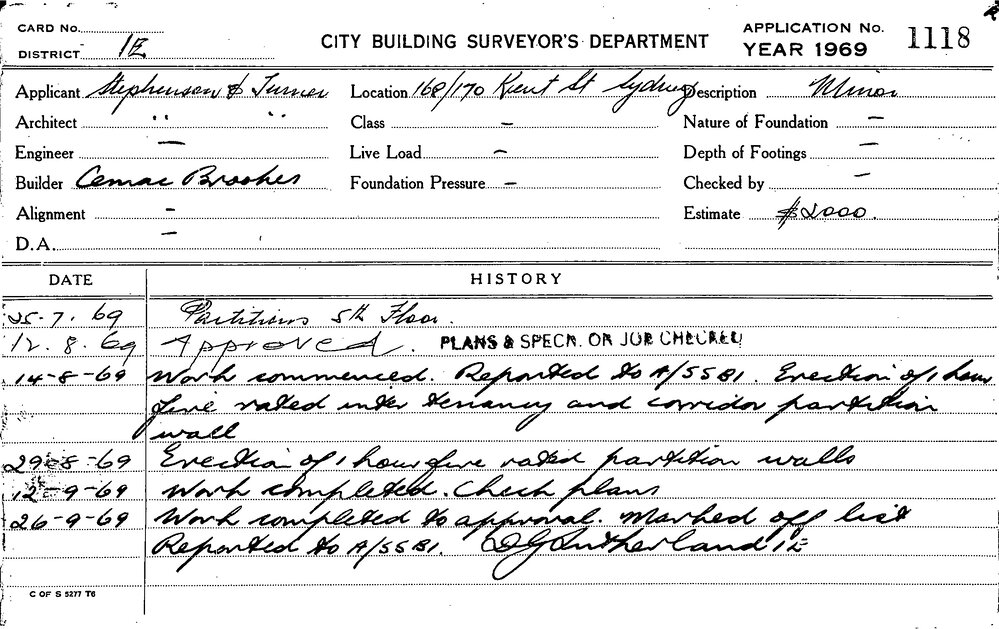 CARD No.
DISTRICT 1E
CITY BUILDING SURVEYOR'S DEPARTMENT
APPLICATION No. 1118
YEAR 1969
Applicant Stephenson & Turner Location 168/170 Kent St Sydney Description Minor
Architect " " Class – Nature of Foundation –
Engineer – Live Load – Depth of Footings –
Builder Cemac Brookes Foundation Pressure – Checked by –
Alignment – Estimate $2000.
D.A. –
DATE HISTORY
25.7.69 Partitions 5th Floor.
12.8.69 Approved. PLANS & SPECN. ON JOB CHECKED
14-8-69 Work commenced. Reported to A/SSBI. Erection of 1 hour
fire rated inter tenancy and corridor partition
wall
29-8-69 Erection of 1 hour fire rated partition walls
12-9-69 Work completed. Check plans
26-9-69 Work completed to approval. Marked off list
Reported to A/SSBI. DGSutherland 1E
C OF S 5277 T6